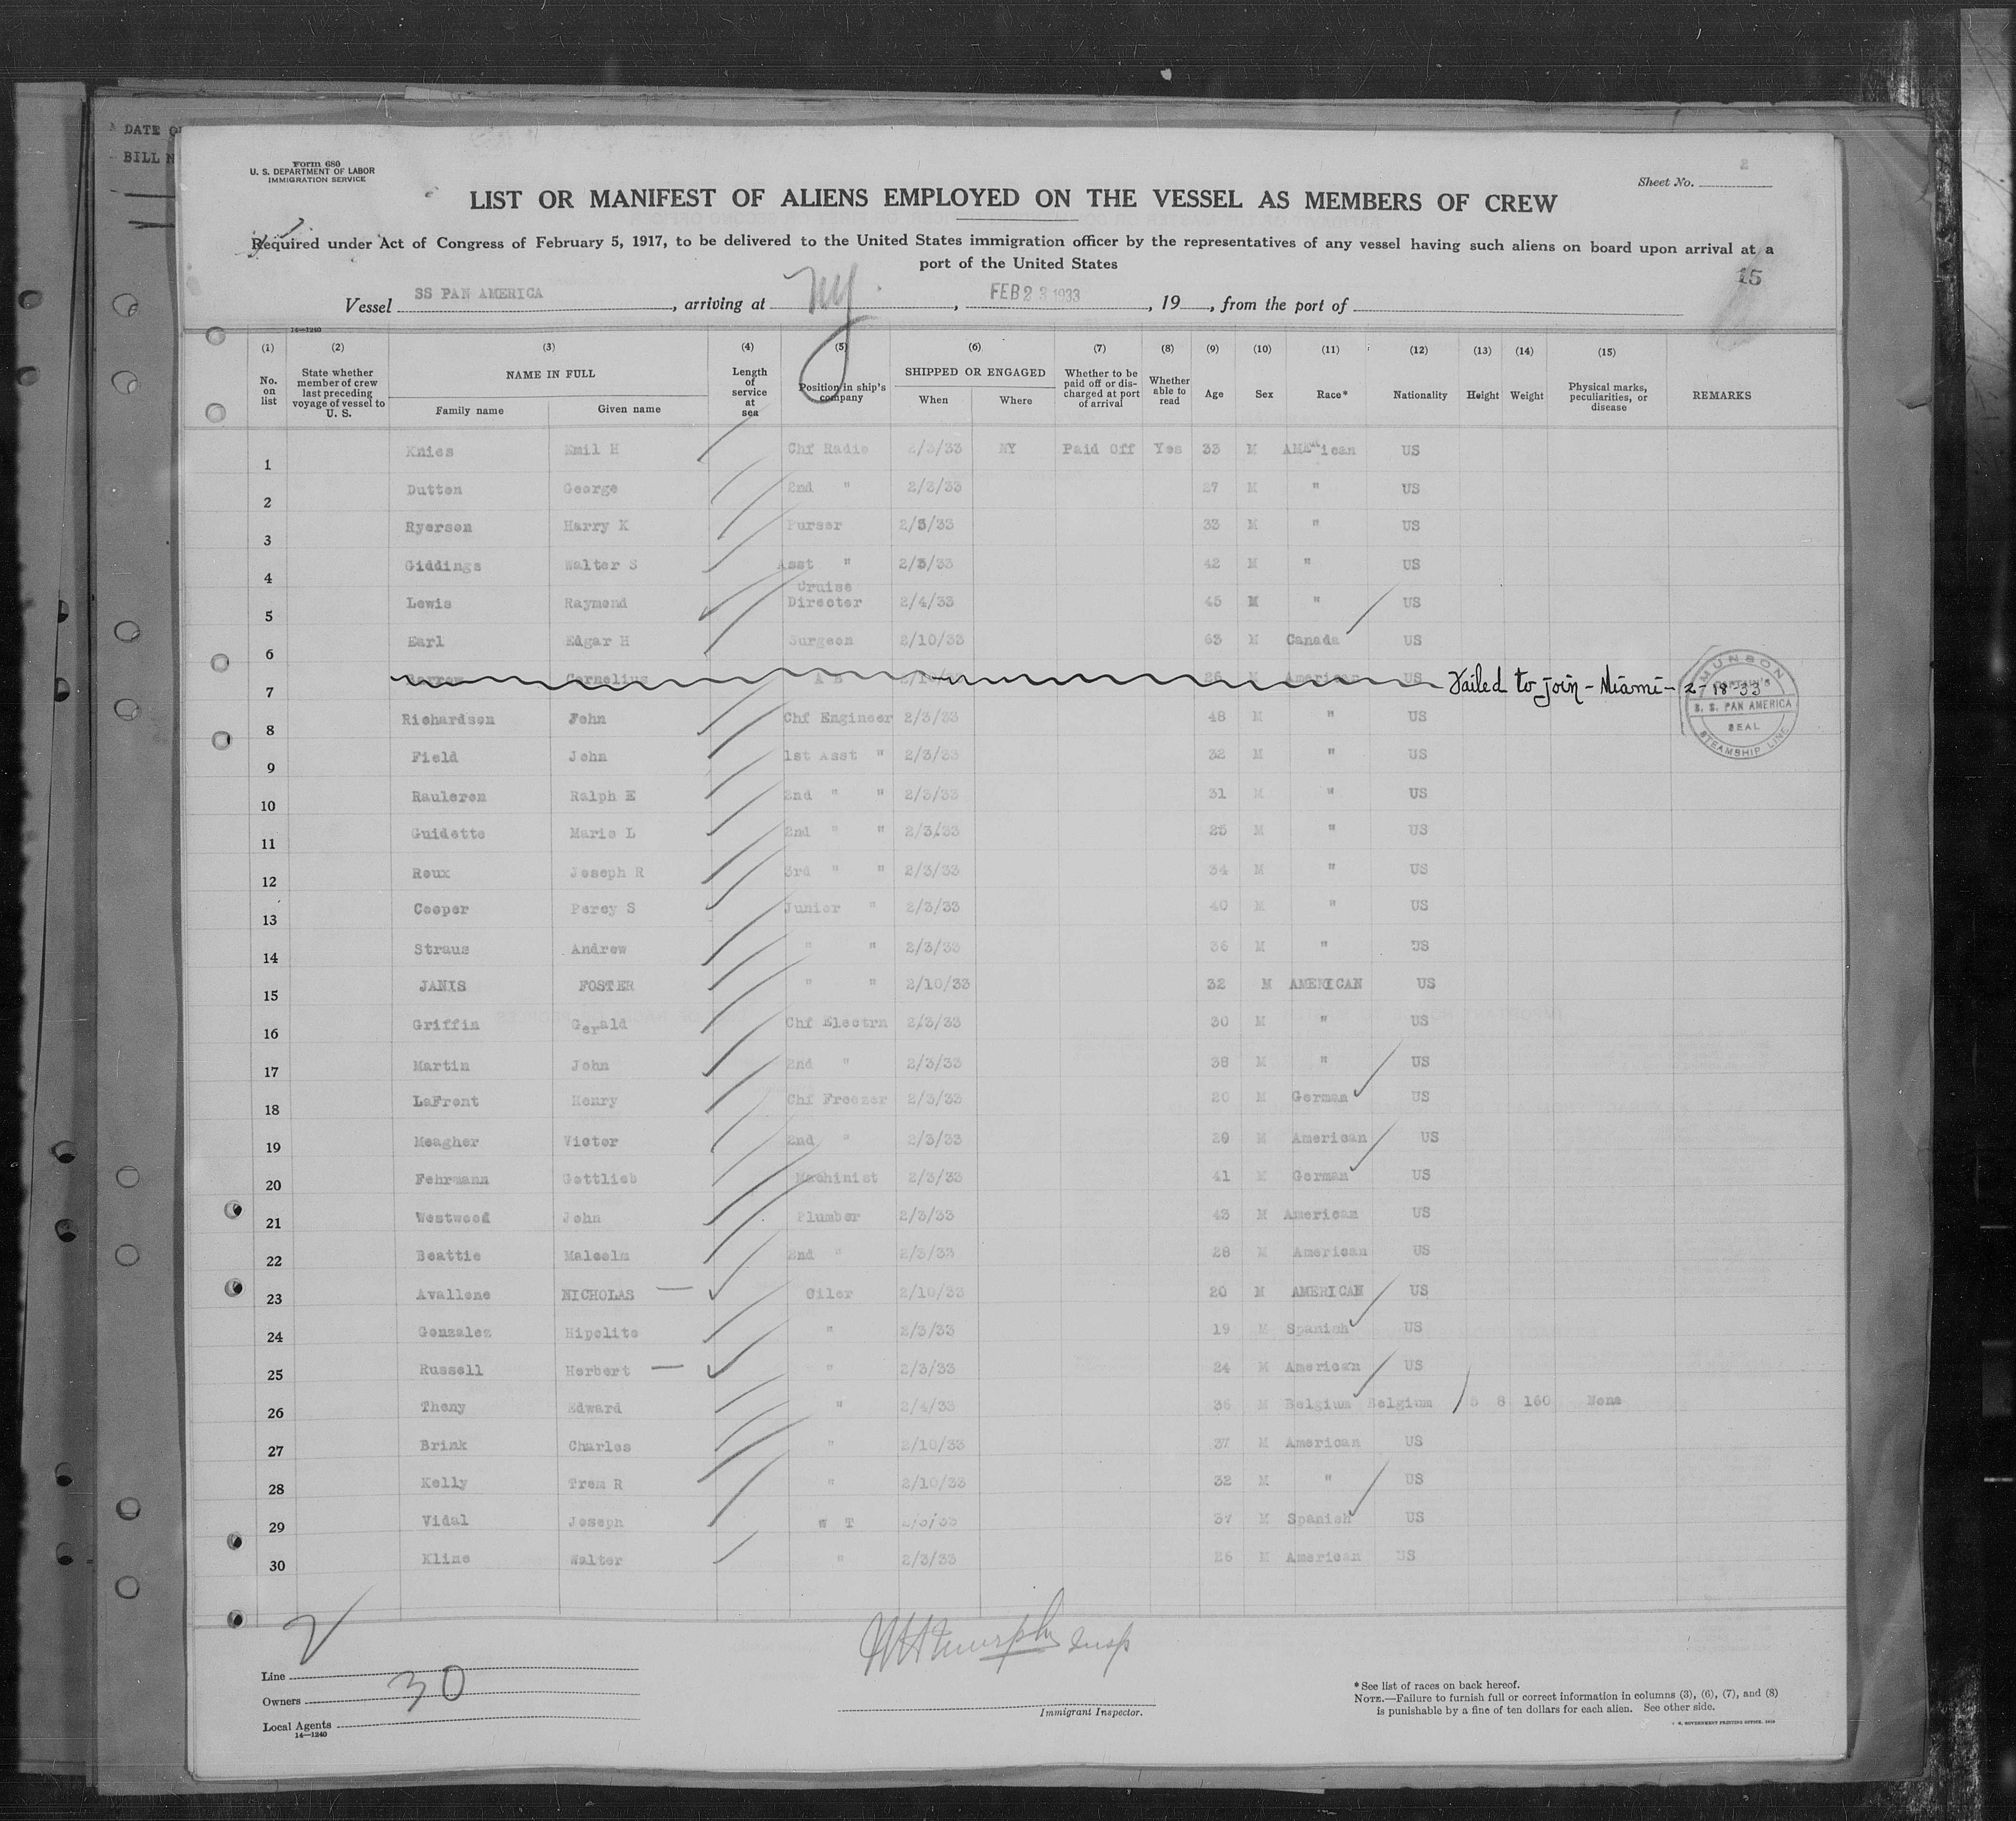 DATE
BILL
Form 680
U. S. DEPARTMENT OF LABOR
IMMIGRATION SERVICE
2
Sheet No.
LIST OR MANIFEST OF ALIENS EMPLOYED ON THE VESSEL AS MEMBERS OF CREW
Required under Act of Congress of February 5, 1917, to be delivered to the United States immigration officer by the representatives of any vessel having such aliens on board upon arrival at a
port of the United States
15
Vessel SS PAN AMERICA, arriving at NY, FEB 23 1933, 19, from the port of
14—1240
(1) (2) (3) (4) (5) (6) (7) (8) (9) (10) (11) (12) (13) (14) (15)
No. on list
State whether member of crew last preceding voyage of vessel to U. S.
NAME IN FULL
Family name
Given name
Length of service at sea
Position in ship's company
SHIPPED OR ENGAGED
When
Where
Whether to be paid off or discharged at port of arrival
Whether able to read
Age
Sex
Race*
Nationality
Height
Weight
Physical marks, peculiarities, or disease
REMARKS
1 Knies Emil H Chf Radio 2/3/33 NY Paid Off Yes 33 M AMERican US
2 Dutton George 2nd " 2/3/33 27 M " US
3 Ryerson Harry K Purser 2/3/33 33 M " US
4 Giddings Walter S Asst " 2/3/33 42 M " US
5 Lewis Raymond Cruise Director 2/4/33 45 M " US
6 Earl Edgar H Surgeon 2/10/33 63 M Canada US
7 Cornelius A B 26 M American US Failed to join - Miami - 2-18-33
MUNSON
CAPTAIN'S
S. S. PAN AMERICA
SEAL
STEAMSHIP LINE
8 Richardson John Chf Engineer 2/3/33 48 M " US
9 Field John 1st Asst " 2/3/33 32 M " US
10 Raulerson Ralph E 2nd " " 2/3/33 31 M " US
11 Guidette Mario L 2nd " " 2/3/33 25 M " US
12 Roux Joseph R 3rd " " 2/3/33 34 M " US
13 Cooper Percy S Junior " 2/3/33 40 M " US
14 Straus Andrew " " 2/3/33 36 M " US
15 JANIS FOSTER " " 2/10/33 32 M AMERICAN US
16 Griffin Gerald Chf Electrn 2/3/33 30 M " US
17 Martin John 2nd " 2/3/33 38 M " US
18 LaFront Henry Chf Freezer 2/3/33 20 M German US
19 Meagher Victor 2nd " 2/3/33 29 M American US
20 Fehrmann Gottlieb Machinist 2/3/33 41 M German US
21 Westwood John Plumber 2/3/33 43 M American US
22 Beattie Malcolm 2nd " 2/3/33 28 M American US
23 Avallone NICHOLAS — Oiler 2/10/33 20 M AMERICAN US
24 Gonzalez Hipolito " 2/3/33 19 M Spanish US
25 Russell Herbert — " 2/3/33 24 M American US
26 Theny Edward " 2/4/33 36 M Belgium Belgium 5 8 160 None
27 Brink Charles " 2/10/33 37 M American US
28 Kelly Trem R " 2/10/33 32 M " US
29 Vidal Joseph W T 2/3/33 37 M Spanish US
30 Kline Walter " 2/3/33 26 M American US
Murphy Insp
Line
30
Owners
Local Agents
14—1240
Immigrant Inspector.
* See list of races on back hereof.
NOTE.—Failure to furnish full or correct information in columns (3), (6), (7), and (8)
is punishable by a fine of ten dollars for each alien. See other side.